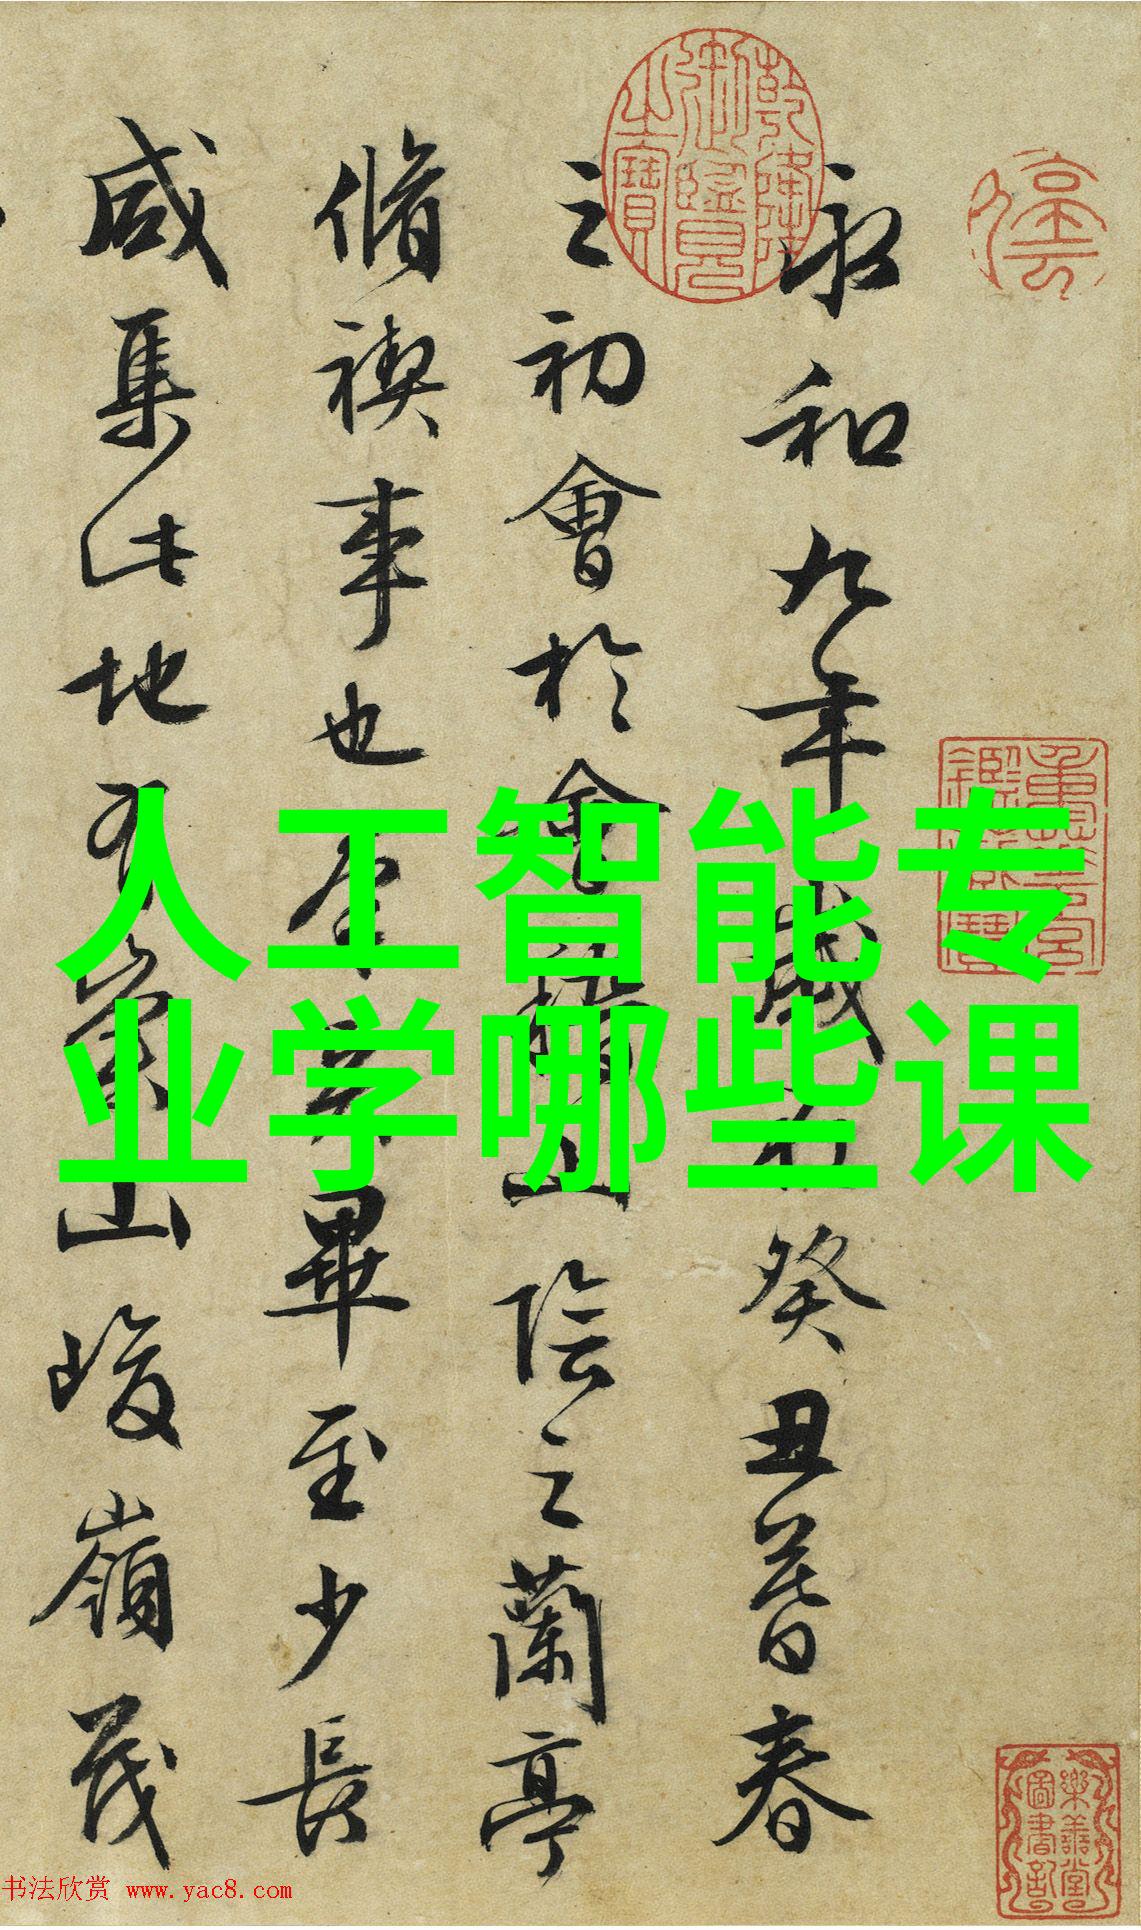 永和九年歲在癸丑暮春
之初會於會稽山陰之蘭亭
脩禊事也羣賢畢至少長
咸集此地有崇山峻嶺茂
人工智能专
业学哪些课
乾隆御鑒之寶
樂善堂圖書記
书法欣赏 www.yac8.com